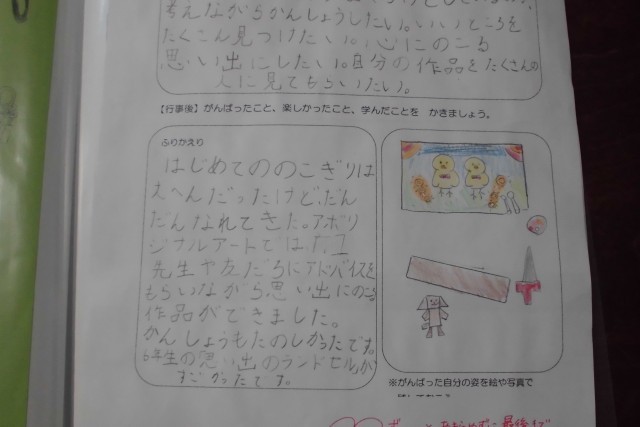 考えながらかんしょうしたい。いいところを
たくさん見つけたい。心にのこる
思い出にしたい。自分の作品をたくさんの
人に見てもらいたい。
【行事後】がんばったこと、楽しかったこと、学んだことを かきましょう。
ふりかえり
はじめてののこぎりは
えへんだったけど、だん
だんなれてきた。アボリ
ジナルアートでは
先生や友だちにアドバイスを
もらいながら思い出にのこる
作品ができました。
かんしょうもたのしかったです。
6年生の「思い出のランドセル」が
すごかったです。
※がんばった自分の姿を絵や写真で
最後まで